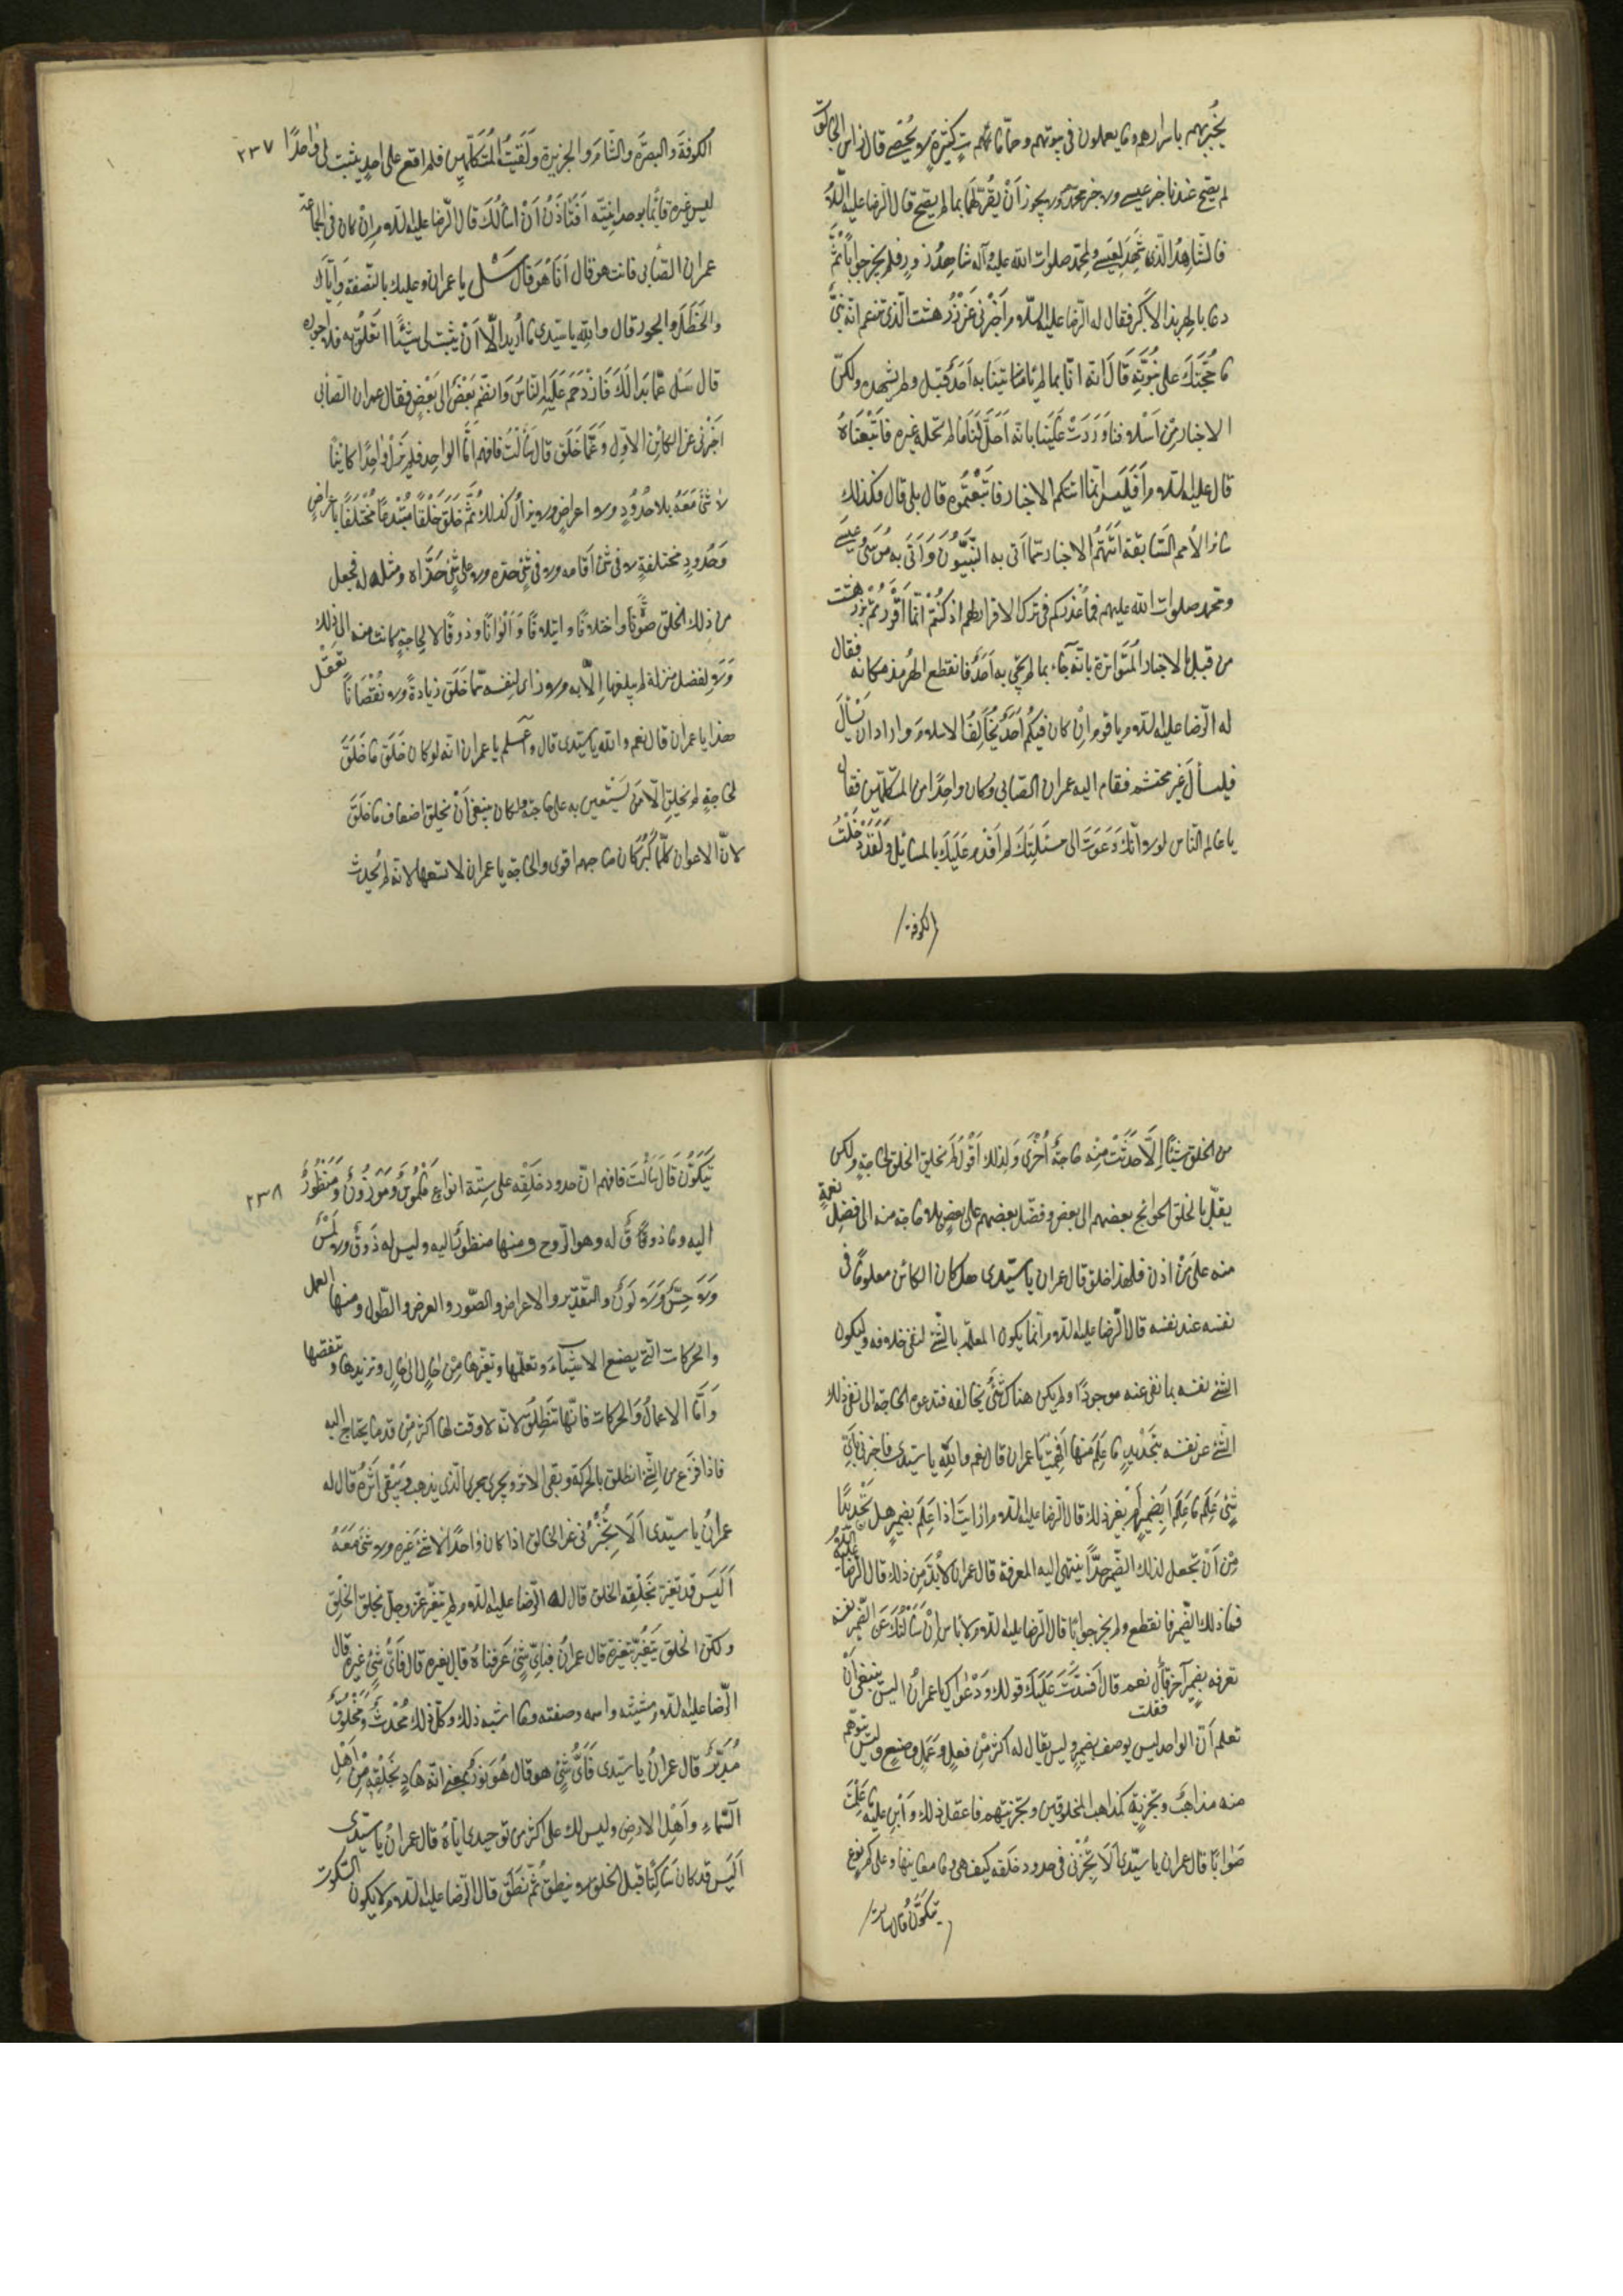 يخبرهم باسرارهم وما يعملون في بيوتهم وجاء بآيات كثيرة لا تحصى قال راس الجالوت
لم يصح عندنا خبر عيسى ولا خبر محمد ولا يجوز أن نقر لهما بما لم يصح قال الرضا عليه السلام
فالشاهد الذي شهد لعيسى ولمحمد صلوات الله عليه وآله شاهد زور فلم يحر جوابا ثم
دعا بالهربذ الاكبر فقال له الرضا عليه السلام اخبرني عن زردهشت الذي تزعم انه نبي
ما حجتك على نبوته قال انه اتى بما لم ياتنا به احد قبله ولم نشهده ولكن
الاخبار من اسلافنا وردت علينا بانه احل لنا ما لم يحله غيره فاتبعناه
قال عليه السلام افليس انما اتتكم الاخبار فاتبعتموه قال بلى قال فكذلك
سائر الأمم السابقة اتتهم الاخبار بما اتى به النبيون واتى به موسى وعيسى
ومحمد صلوات الله عليهم فما عذركم في ترك الاقرار لهم اذ كنتم انما اقررتم بزردهشت
من قبل الاخبار المتواترة بانه جاء بما لم يجئ به احد فانقطع الهربذ مكانه فقال
له الرضا عليه السلام يا قوم ان كان فيكم احد يخالف الاسلام واراد ان يسأل
فليسأل غير محتشم فقام اليه عمران الصابي وكان واحدا من المتكلمين فقال
يا عالم الناس لولا انك دعوت الى مسئلتك لم اقدم عليك بالمسائل ولقد دخلت
الكوفة
٢٣٧
الكوفة والبصرة والشام والجزيرة ولقيت المتكلمين فلم اقع على احد يثبت لي واحدا
ليس غيره قائما بوحدانيته افتأذن أن اسألك قال الرضا عليه السلام ان كان في الجماعة
عمران الصابي فانت هو قال انا هو قال سل يا عمران وعليك بالنصفة واياك
والخطل والجور قال والله يا سيدي ما أريد الا ان يثبت لي شيئا اتعلق به فلا اجوزه
قال سل عما بدا لك فازدحم عليه الناس وانضم بعض الى بعض فقال عمران الصابي
اخبرني عن الكائن الاول وعما خلق قال سألت فافهم اما الواحد فلم يزل واحدا كائنا
لا شئ معه بلا حدود ولا اعراض ولا يزال كذلك ثم خلق خلقا مبتدعا مختلفا باعراض
وحدود مختلفة لا في شئ اقامه ولا في شئ حده ولا على شئ حذاه ومثله له فجعل
من ذلك الخلق صفوة واختلافا وايتلافا والوانا وذوقا لا لحاجة كانت منه الى ذلك
ولا لفضل منزلة لم يبلغها الا به ولا راى لنفسه فيما خلق زيادة ولا نقصانا تعقل
هذا يا عمران قال نعم والله يا سيدي قال واعلم يا عمران انه لو كان خلق ما خلق
لحاجة لم يخلق الا من يستعين به على حاجته ولكان ينبغي أن يخلق اضعاف ما خلق
لان الاعوان كلما كبر كان صاحبهم اقوى والحاجة يا عمران لا تسعها لانه لم يحدث
من الخلق شيئا إلا حدثت منه حاجة أخرى ولذلك اقول لم يخلق الخلق لحاجة ولكن
بالخلق الحوائج بعضهم الى بعض وفضل بعضهم على بعض بلا حاجة منه الى فضل نقمة
منه على من اذن فلهذا خلق قال عمران يا سيدي هل كان الكائن معلوما في
نفسه عند نفسه قال الرضا عليه السلام انما يكون المعلم بالشئ لنفي خلافه وليكون
الشئ نفسه بما نفي عنه موجودا ولم يكن هناك شئ يخالفه فتدعوه الحاجة الى نفي ذلك
الشئ عن نفسه بتحديد ما علم منها افهمت يا عمران قال نعم والله يا سيدي فاخبرني باي
شئ علم ما علم ابضمير أم بغير ذلك قال الرضا عليه السلام ارايت اذا علم بضمير هل تجد بدا
من أن تجعل لذلك الضمير حدا ينتهي اليه المعرفة قال عمران لا بد من ذلك قال الرضا عليه السلام
فما ذلك الضمير فانقطع ولم يحر جوابا قال الرضا عليه السلام لا بأس ان سألتك عن الضمير نفسه
تعرفه بضمير آخر فقلت نعم قال افسدت عليك قولك ودعواك يا عمران اليس ينبغي أن
تعلم أن الواحد ليس يوصف بضمير وليس يقال له اكثر من فعل وعمل وصنع وليس يتوهم
منه مذاهب وتجزية كمذاهب المخلوقين وتجزيتهم فاعقل ذلك وابن عليه ما علمت
صوابا قال عمران يا سيدي ألا تخبرني في حدود خلقه كيف هي وما معانيها وعلى كم نوع
يتكون قال سألت
٢٣٨
يتكون قال سألت فافهم ان حدود خلقه على ستة انواع ملموس وموزون ومنظور
اليه وما ذوق له وهو الروح ومنها منظور اليه وليس له ذوق ولا لمس
ولا حس ولا لون والتقدير والاعراض والصور والعرض والطول ومنها العمل
والحركات التي يصنع الاشياء وتعلمها وتغيرها من حال الى حال وتزيدها وتنقصها
وأما الاعمال والحركات فانها تنطلق لانه لا وقت لها اكثر من قدر ما يحتاج اليه
فاذا فرغ من الشئ انطلق بالحركة وبقي الاثر ويجري مجرى الذي يذهب ويبقى اثره قال له
عمران يا سيدي ألا تخبرني عن الخالق اذا كان واحدا لا شئ غيره ولا شئ معه
أليس قد تغير بخلقه الخلق قال له الرضا عليه السلام لم يتغير عز وجل بخلق الخلق
ولكن الخلق يتغير بتغيره قال عمران فباي شئ عرفناه قال بغيره قال فاي شئ غيره قال
الرضا عليه السلام مشيته واسمه وصفته وما اشبه ذلك وكل ذلك محدث ومخلوق
مدبر قال عمران يا سيدي فأي شئ هو قال هو نور بمعنى انه هاد بخلقه من أهل
السماء وأهل الارض وليس لك على اكثر من توحيدي اياه قال عمران يا سيدي
أليس قد كان ساكتا قبل الخلق لا ينطق ثم نطق قال الرضا عليه السلام لا يكون السكوت